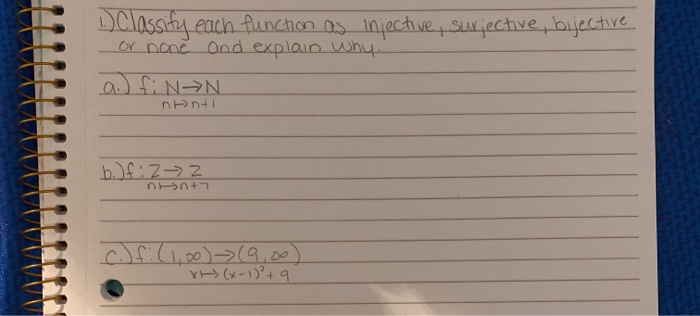 1.) Classify each function as injective, surjective, bijective
or none and explain why.
a.) f: N→N
n↦n+1
b.) f: Z→Z
n↦n+7
c.) f: (1,∞)→(9,∞)
x↦(x-1)²+9